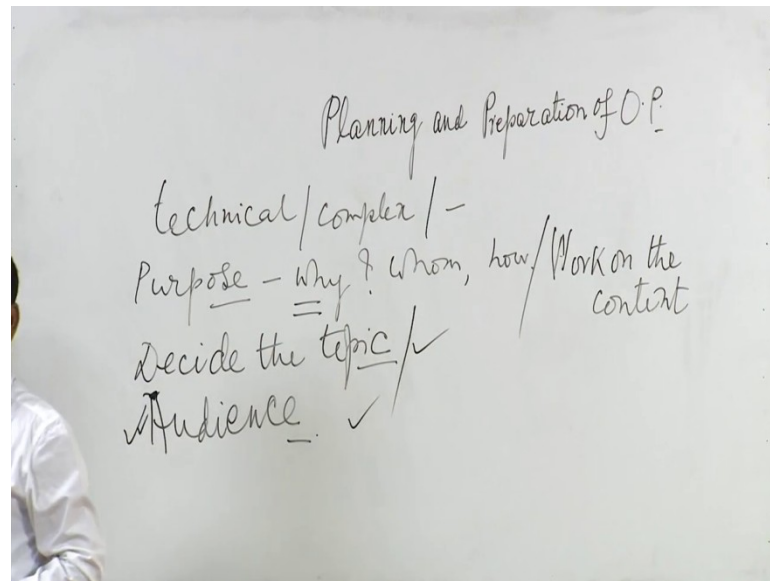 Planning and Preparation of O.P.
technical/complex/-
Purpose - why? whom, how/Work on the
content
Decide the topic/✓
✓Audience. ✓